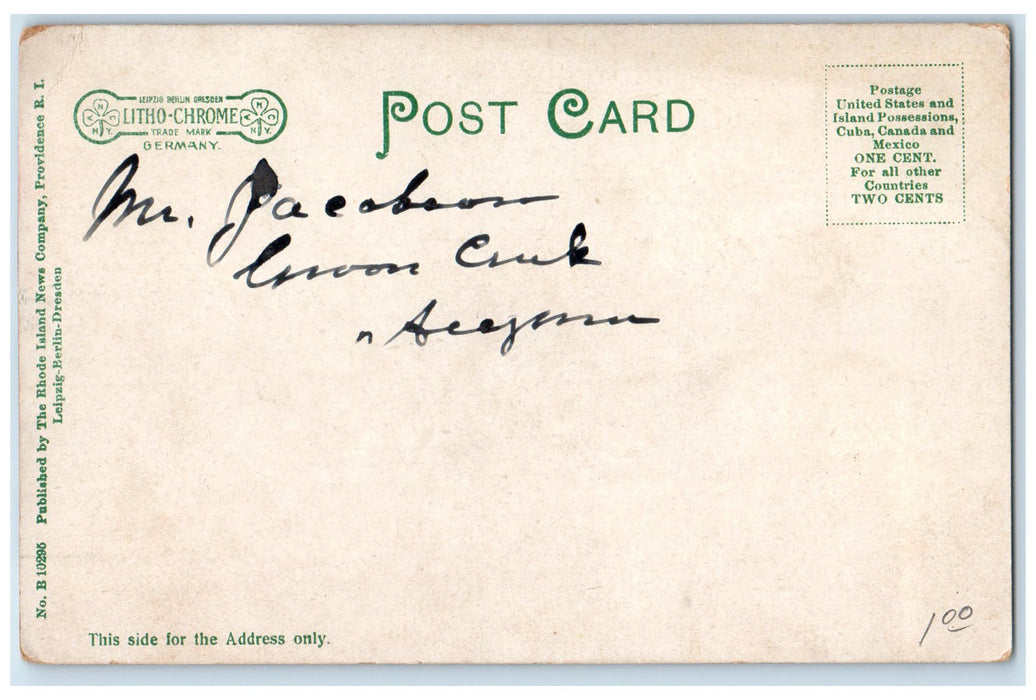 LEIPZIG BERLIN DRESDEN
LITHO-CHROME
TRADE MARK
GERMANY.
POST CARD
Postage
United States and
Island Possessions,
Cuba, Canada and
Mexico
ONE CENT.
For all other
Countries
TWO CENTS
Mr. Jacobson
No. B 10295 Published by The Rhode Island News Company, Providence R. I.
Leipzig-Berlin-Dresden
This side for the Address only.
1.00